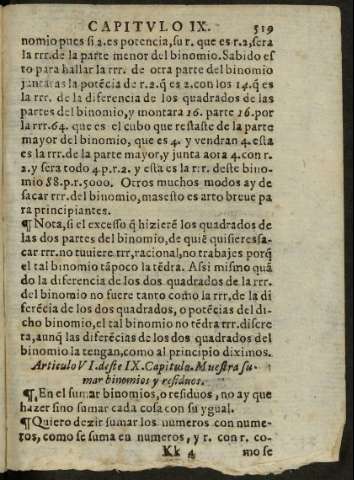 CAPITVLO IX. 519
nomio pues si 2. es potencia, su r. que es r.2, sera
la rrr. de la parte menor del binomio. Sabido es
to para hallar la rrr. de otra parte del binomio
juntaras la potẽcia de r.2. q̃ es 2. con los 14. q̃ es
la rrr. de la diferencia de los quadrados de las
partes del binomio, y montara 16. parte 16. por
la rrr. 64. que es el cubo que restaste de la parte
mayor del binomio, que es 4. y vendran 4. esta
es la rrr. de la parte mayor, y junta aora 4. con r.
2. y sera todo 4. p. r. 2. y esta es la r r. deste bino-
mio 88. p. r. 5000. Otros muchos modos ay de
sacar rrr. del binomio, mas esto es arto breue pa
ra principiantes.
¶ Nota, si el excesso q̃ hizierẽ los quadrados de
las dos partes del binomio, de quiẽ quisieres sa-
car rrr. no tuuiere rrr, racional, no trabajes porq̃
el tal binomio tãpoco la tẽdra. Assi mismo quã
do la diferencia de los dos quadrados de la rrr.
del binomio no fuere tanto como la rrr, de la di
ferẽcia de los dos quadrados, o potẽcias del di-
cho binomio, el tal binomio no tẽdra rrr. discre
ta, aunq̃ las diferẽcias de los dos quadrados del
binomio la tengan, como al principio diximos.
Articulo VI. deste IX. Capitulo. Muestra su-
mar binomios y residuos.
¶ En el sumar binomios, o residuos, no ay que
hazer sino sumar cada cosa con su ygual.
¶ Quiero dezir sumar los numeros con nume-
ros, como se suma en numeros, y r. con r. co-
Kk 4 mo se